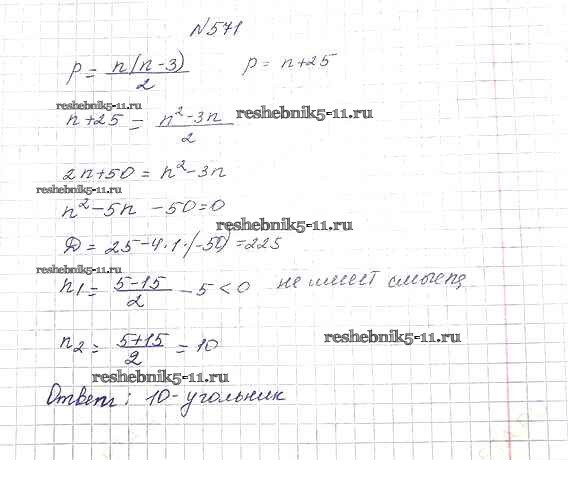 №571
p = n(n-3)/2 p = n+25
reshebnik5-11.ru
n+25 = n²-3n/2 reshebnik5-11.ru
2n+50 = n²-3n
reshebnik5-11.ru
n²-5n -50=0
reshebnik5-11.ru
D = 25-4·1·(-50) = 225
reshebnik5-11.ru
n₁ = 5-15/2 - 5 < 0 не имеет смысла
reshebnik5-11.ru
n₂ = 5+15/2 = 10
reshebnik5-11.ru
Ответ: 10-угольник